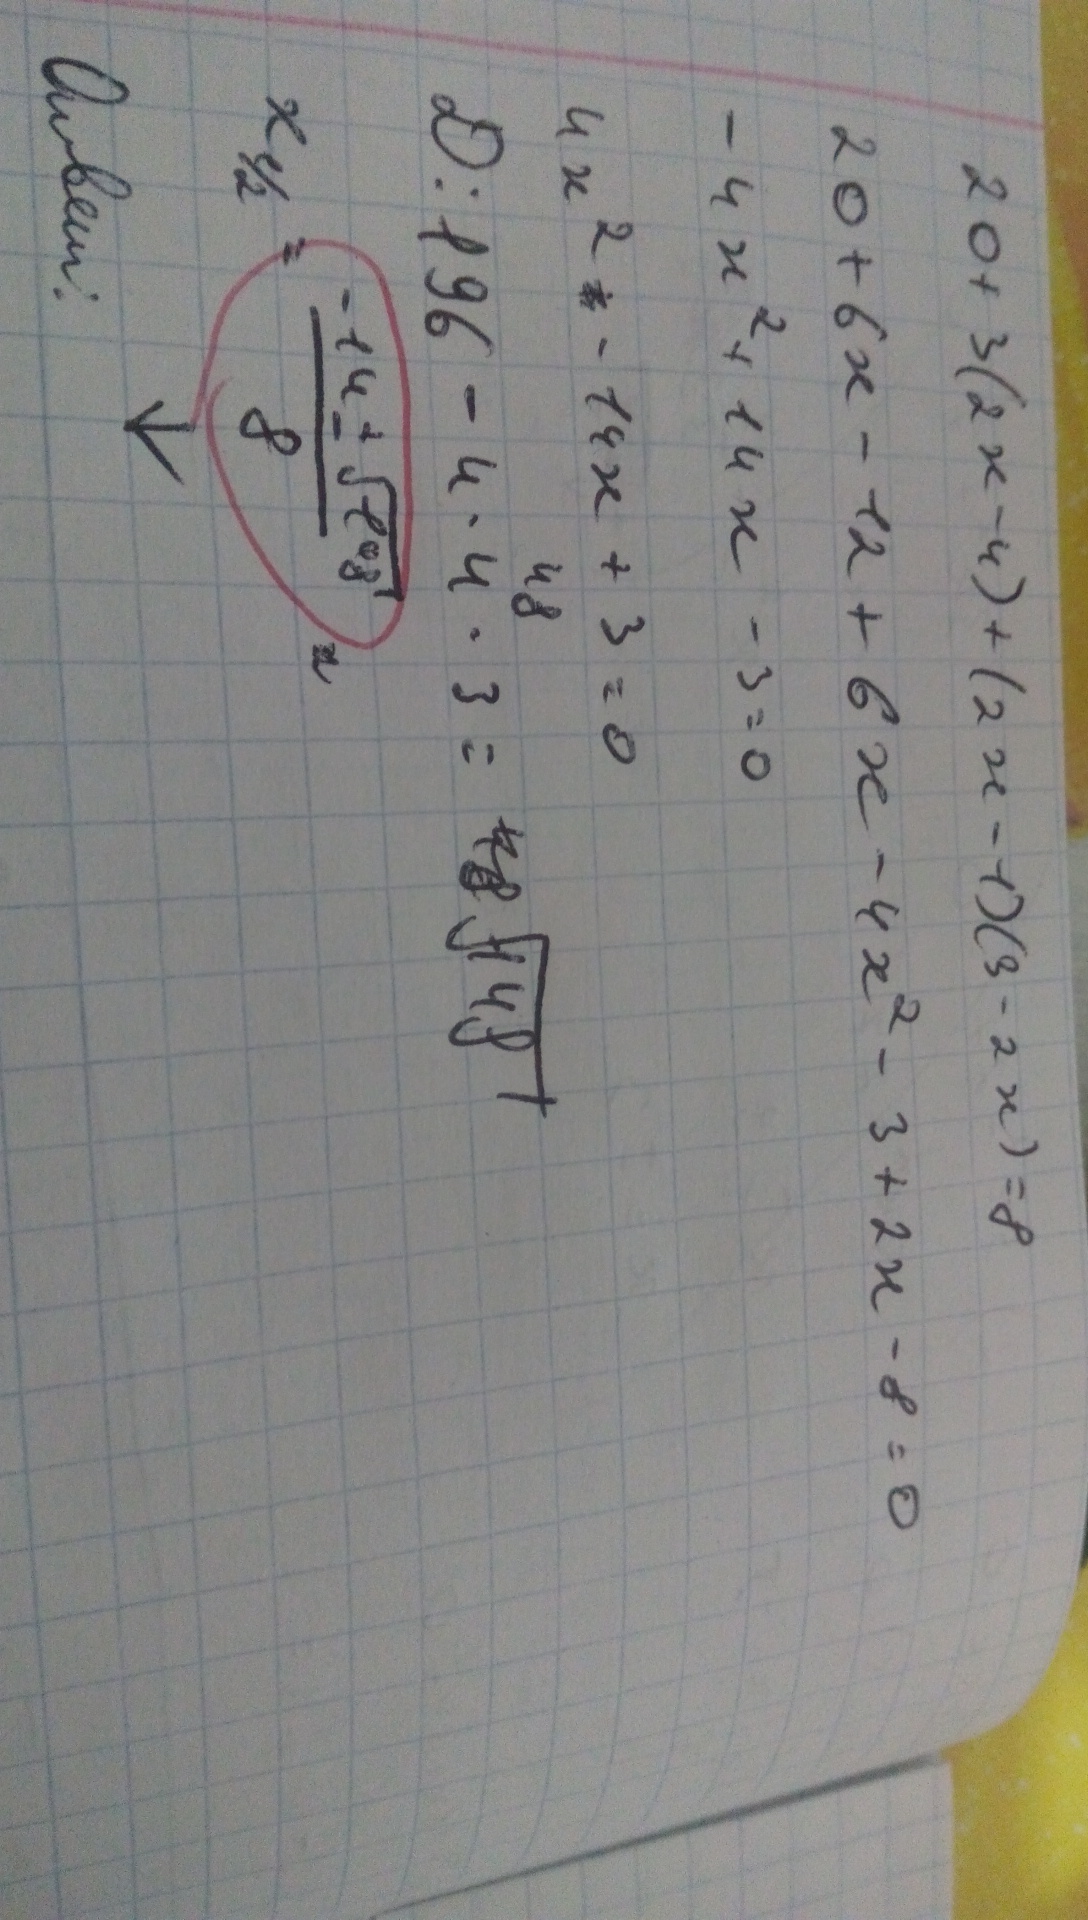 20+3(2x-4)+(2x-1)(3-2x)=8
20+6x-12+6x-4x²-3+2x-8=0
-4x²+14x-3=0
4x²-14x+3=0
48
D: 196-4·4·3= √148
x₁/₂ = (-14±√148)/8
Ответ: